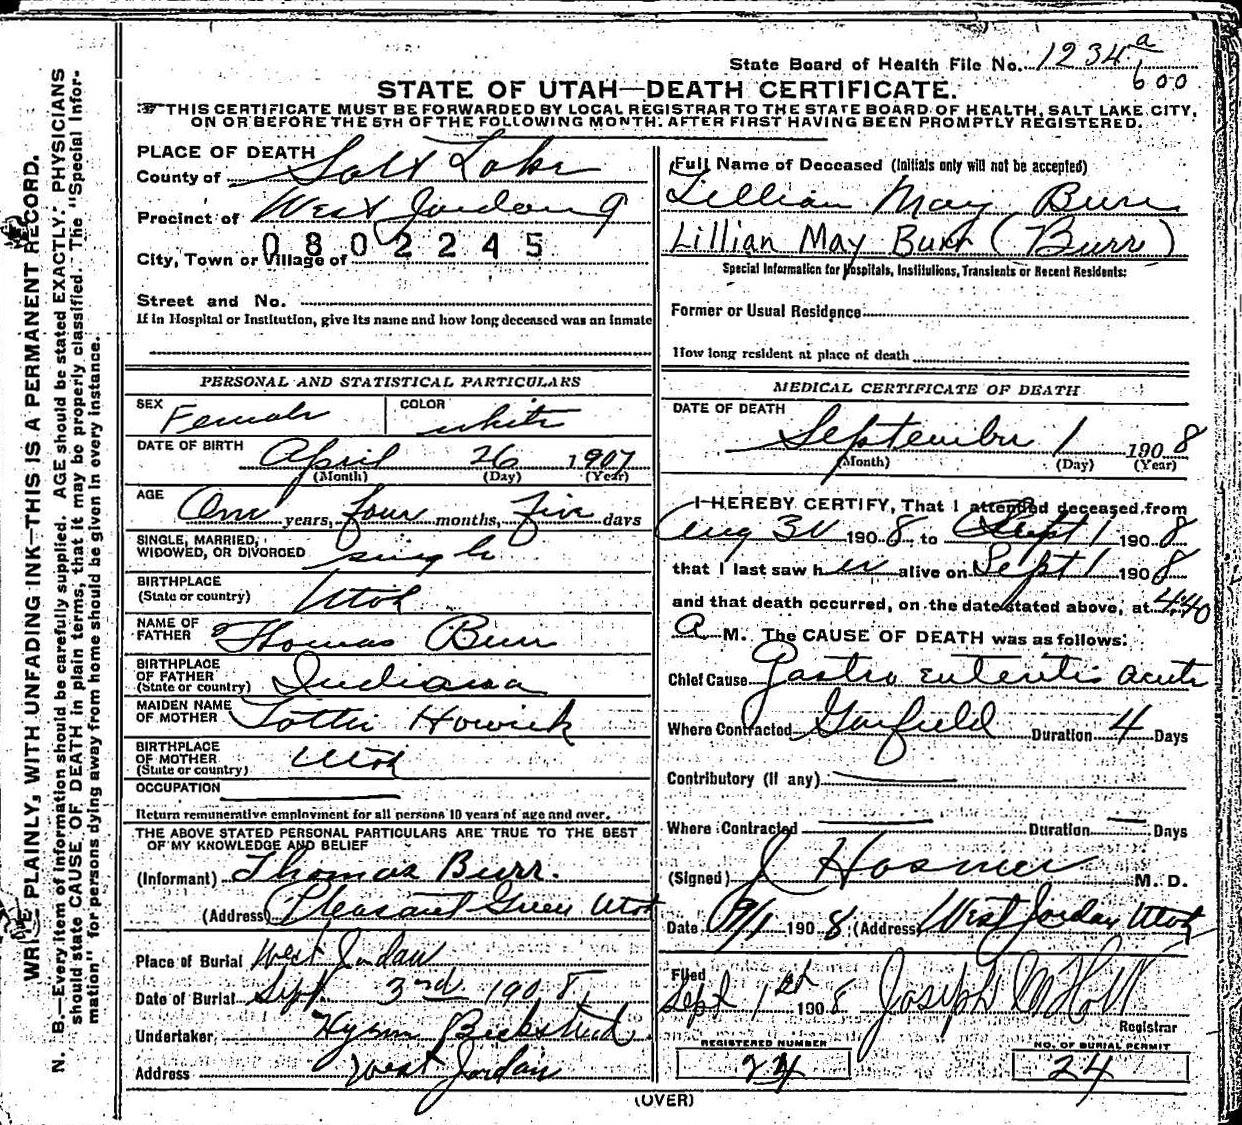 State Board of Health File No. 1234 a
600
STATE OF UTAH—DEATH CERTIFICATE.
THIS CERTIFICATE MUST BE FORWARDED BY LOCAL REGISTRAR TO THE STATE BOARD OF HEALTH, SALT LAKE CITY,
ON OR BEFORE THE 5TH OF THE FOLLOWING MONTH. AFTER FIRST HAVING BEEN PROMPTLY REGISTERED.
WRITE PLAINLY, WITH UNFADING INK—THIS IS A PERMANENT RECORD.
N. B.—Every item of information should be carefully supplied. AGE should be stated EXACTLY. PHYSICIANS
should state CAUSE OF DEATH in plain terms, that it may be properly classified. The "Special Infor-
mation" for persons dying away from home should be given in every instance.
PLACE OF DEATH
County of Salt Lake
Precinct of West Jordan 9
0802245
City, Town or Village of
Street and No.
If in Hospital or Institution, give its name and how long deceased was an inmate
PERSONAL AND STATISTICAL PARTICULARS
SEX Female COLOR white
DATE OF BIRTH April 26 1907
(Month) (Day) (Year)
AGE One years, four months, five days
SINGLE, MARRIED,
WIDOWED, OR DIVORCED single
BIRTHPLACE
(State or country) Utah
NAME OF
FATHER Thomas Burr
BIRTHPLACE
OF FATHER
(State or country) Indiana
MAIDEN NAME
OF MOTHER Lottie Howick
BIRTHPLACE
OF MOTHER
(State or country) Utah
OCCUPATION
Return remunerative employment for all persons 10 years of age and over.
THE ABOVE STATED PERSONAL PARTICULARS ARE TRUE TO THE BEST
OF MY KNOWLEDGE AND BELIEF
(Informant) Thomas Burr.
(Address) Pleasant Green Utah
Place of Burial West Jordan
Date of Burial Sept. 3rd 1908
Undertaker Hyrum Beckstead
Address West Jordan
Full Name of Deceased (Initials only will not be accepted)
Lillian May Burr
Lillian May Burr (Burr)
Special Information for Hospitals, Institutions, Transients or Recent Residents:
Former or Usual Residence
How long resident at place of death
MEDICAL CERTIFICATE OF DEATH
DATE OF DEATH
September 1 1908
(Month) (Day) (Year)
I HEREBY CERTIFY, That I attended deceased from
Aug 30 1908 to Sept 1 1908
that I last saw her alive on Sept 1 1908
and that death occurred, on the date stated above, at 4:40
A M. The CAUSE OF DEATH was as follows:
Chief Cause Gastro enteritis acute
Where Contracted Garfield Duration 4 Days
Contributory (If any)
Where Contracted Duration Days
(Signed) J Hosmer M. D.
Date 9/1 1908 (Address) West Jordan Utah
Filed
Sept 1st 1908 Joseph M Holt
Registrar
REGISTERED NUMBER
24
NO. OF BURIAL PERMIT
24
(OVER)